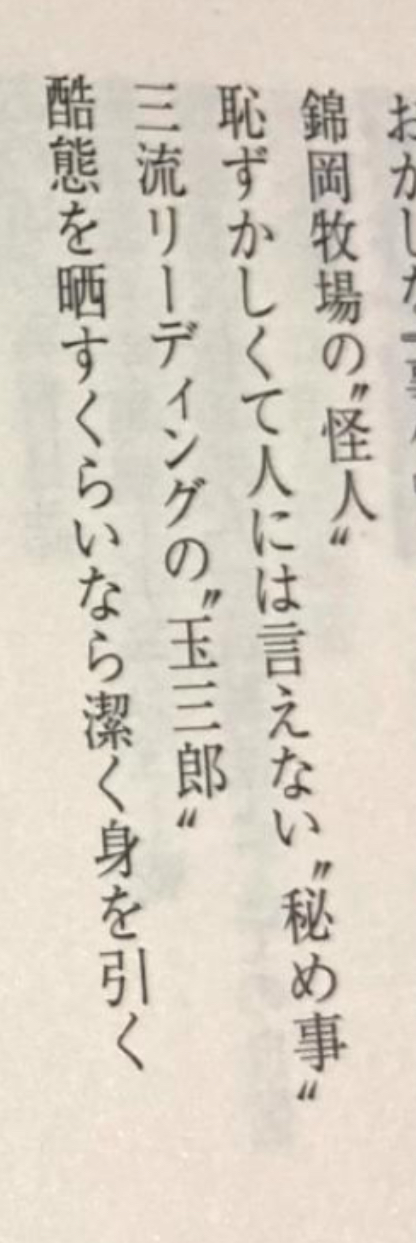 おかしな
錦岡牧場の〝怪人〟
恥ずかしくて人には言えない〝秘め事〟
三流リーディングの〝玉三郎〟
酷態を晒すくらいなら潔く身を引く